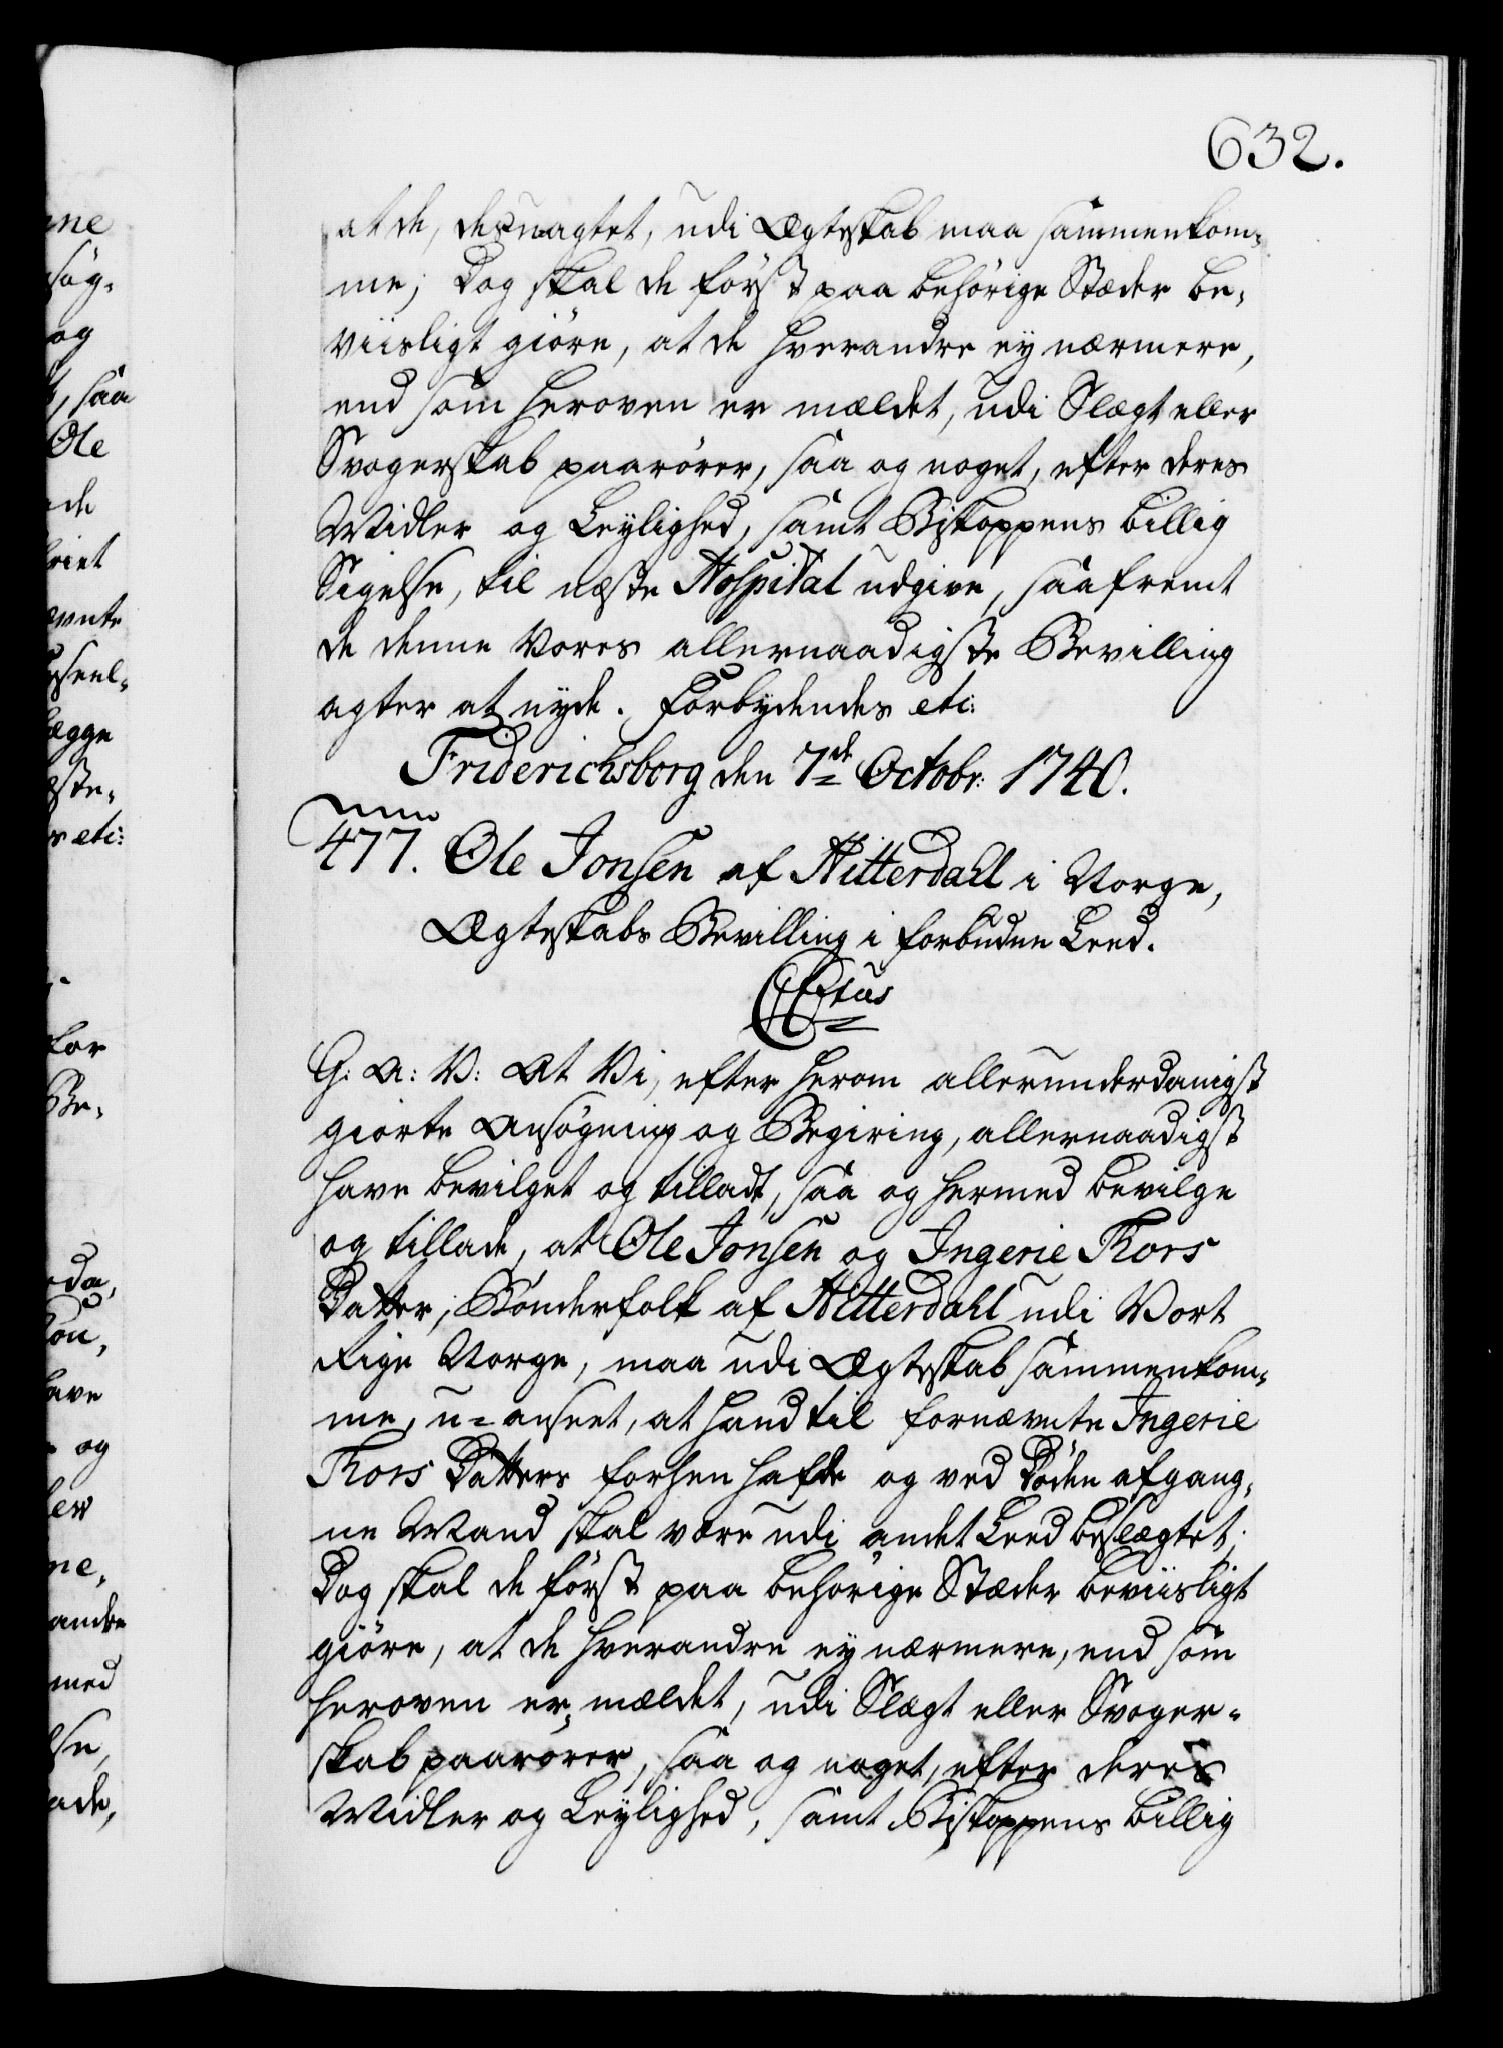 632.
at de, desuagtet, udi Ægteskab maa sammenkom-
me; Dog skal de först paa behörige Stæder be-
viisligt giöre, at de hverandre ey nærmere,
end som heroven er mældet, udi Slægt eller
Svogerskab paarörer, saa og noget, efter deres
Midler og Leylighed, samt Biskoppens billig
Sigelse, til næste Hospital udgive, saafremt
de denne Vores allernaadigste Bevilling
agter at nyde. Forbydendes etc:
Friderichsborg den 7de Octobr: 1740.
477. Ole Jonsen af Hitterdahl i Norge,
Ægteskabs Bevilling i forbuden Leed.
CVItus
G: A: V: At Vi, efter herom allerunderdanigst
giorte Ansögning og Begiering, allernaadigst
have bevilget og tilladt, saa og hermed bevilge
og tillade, at Ole Jonsen og Ingerie Thors
Datter, Bönderfolk af Hitterdahl udi Vort
Rige Norge, maa udi Ægteskab sammenkom-
me, u-anseet, at hand til fornævnte Ingerie
Thors Datters forhen hafde og ved Döden afgang-
ne Mand skal være udi andet Leed beslægtet;
Dog skal de först paa behörige Stæder beviisligt
giöre, at de hverandre ey nærmere, end som
heroven er mældet, udi Slægt eller Svoger-
skab paarörer, saa og noget, efter deres
Midler og Leylighed, samt Biskoppens billig